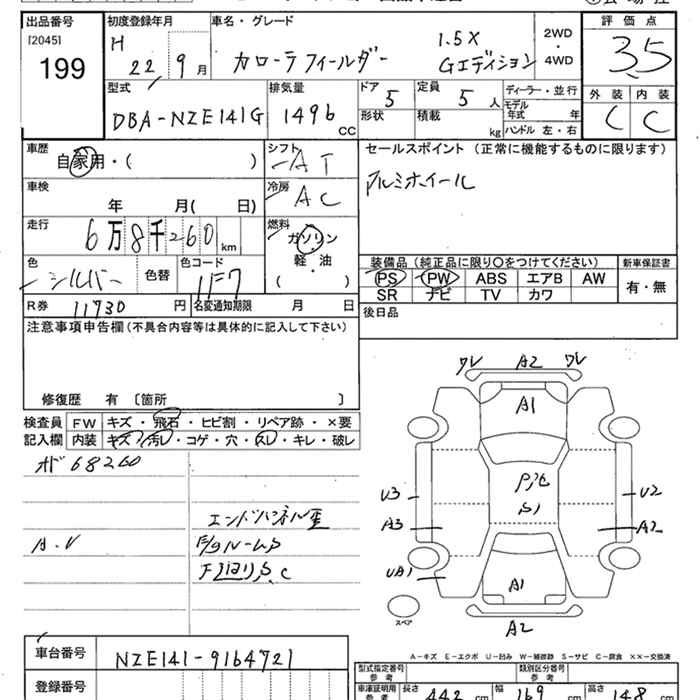 出品番号 初度登録年月 車名・グレード 評価点
[2045] H 1.5X 2WD
199 22 9月 カローラフィールダー Gエディション ・ 3.5
4WD
型式 排気量 ドア 定員 ディーラー・並行 外装 内装
DBA-NZE141G 1496 CC 5 5人 モデル年式 年 C C
形状 積載 kg ハンドル 左・右
車歴 シフト セールスポイント (正常に機能するものに限ります)
自家用・( ) AT アルミホイール
車検 冷房
年 月( 日) AC
走行 燃料
6万8千260km ガソリン
軽・油
( )
装備品 (純正品に限り○をつけてください) 新車保証書
色 色替 色コード PS PW ABS エアB AW 有・無
シルバー 1F7 SR ナビ TV カワ
R券 11730円 名変通知期限 月 日 後日品
注意事項申告欄 (不具合内容等は具体的に記入して下さい)
修復歴 有 〔箇所 〕
検査員 FW キズ・飛石・ヒビ割・リペア跡・×要
記入欄 内装 キズ・汚レ・コゲ・穴・スレ・キレ・破レ
68260
エンドパネル
A.V
ワレ A2 ワレ
A1
U3 U2
S1
A3 A2
UA1
A1
A2
スペア
A−キズ E−エクボ U−凹み W−補修跡 S−サビ C−腐食 ××−交換済
車台番号 NZE141-9164721
登録番号
型式指定番号 参考 類別区分番号 参考
車庫証明用 参考 長さ 442 cm 幅 169 cm 高さ 148 cm